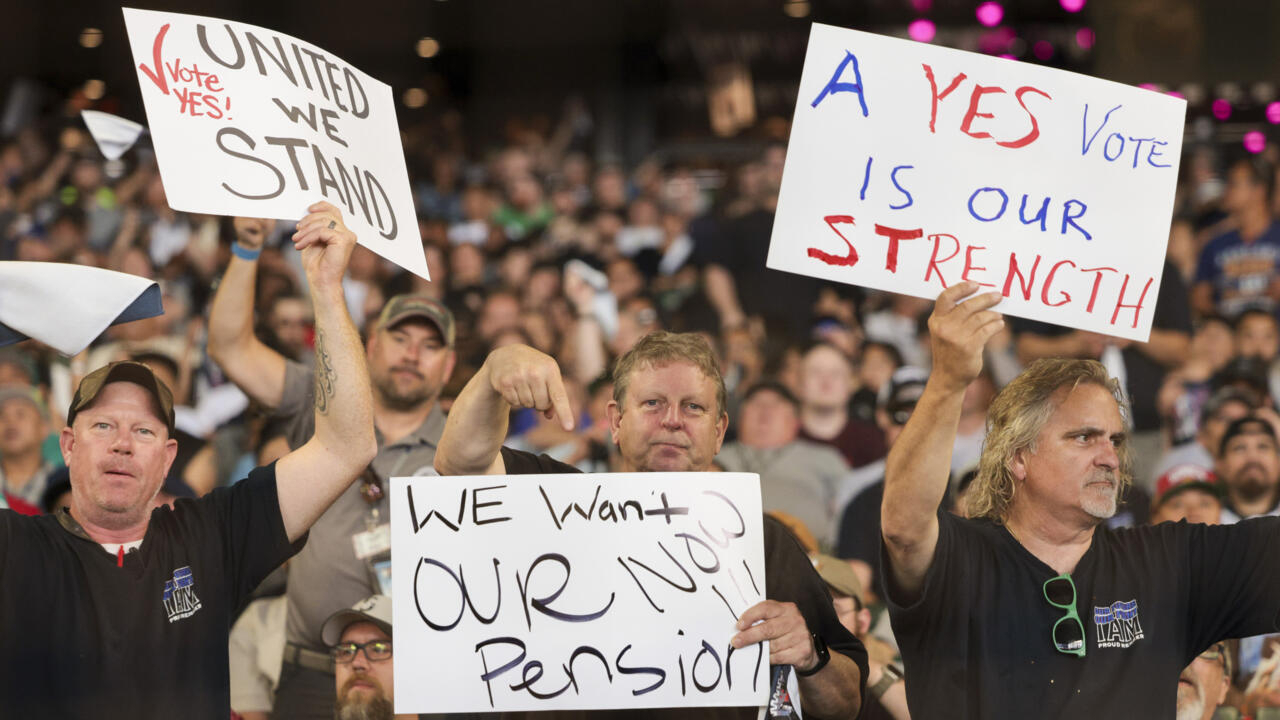 ✓Vote YES!
UNITED
WE
STAND
A YES Vote
IS OUR
STRENGTH
WE Want
OUR NOW
!!!
Pension
IAM
IAM